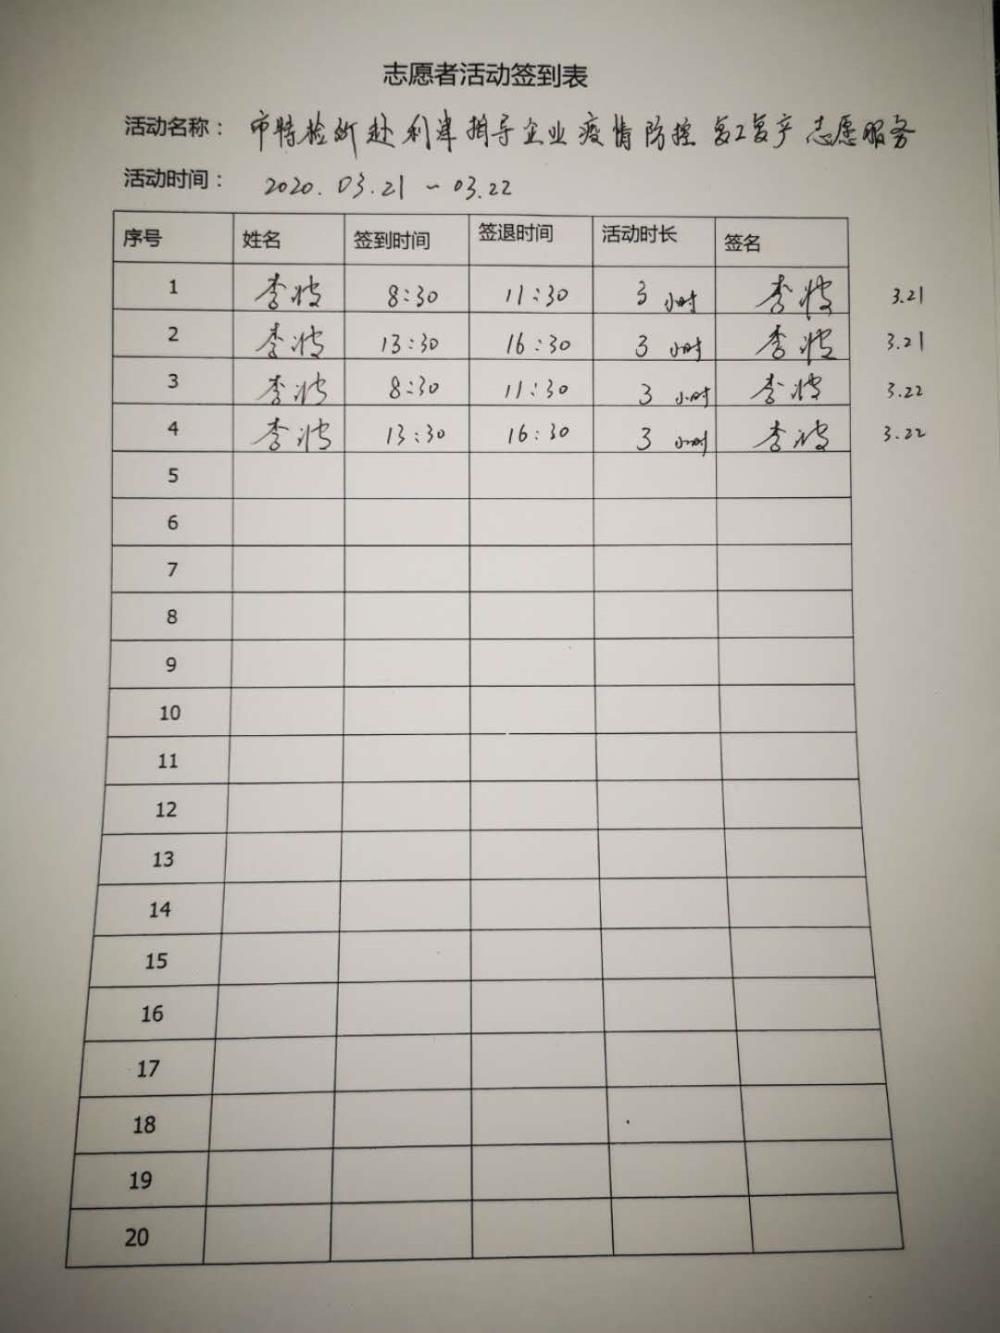 志愿者活动签到表
活动名称： 市特检所赴利津指导企业疫情防控复工复产志愿服务
活动时间： 2020.03.21~03.22
序号 姓名 签到时间 签退时间 活动时长 签名
1 李波 8:30 11:30 3 小时 李波 3.21
2 李波 13:30 16:30 3 小时 李波 3.21
3 李波 8:30 11:30 3 小时 李波 3.22
4 李波 13:30 16:30 3 小时 李波 3.22
5
6
7
8
9
10
11
12
13
14
15
16
17
18
19
20